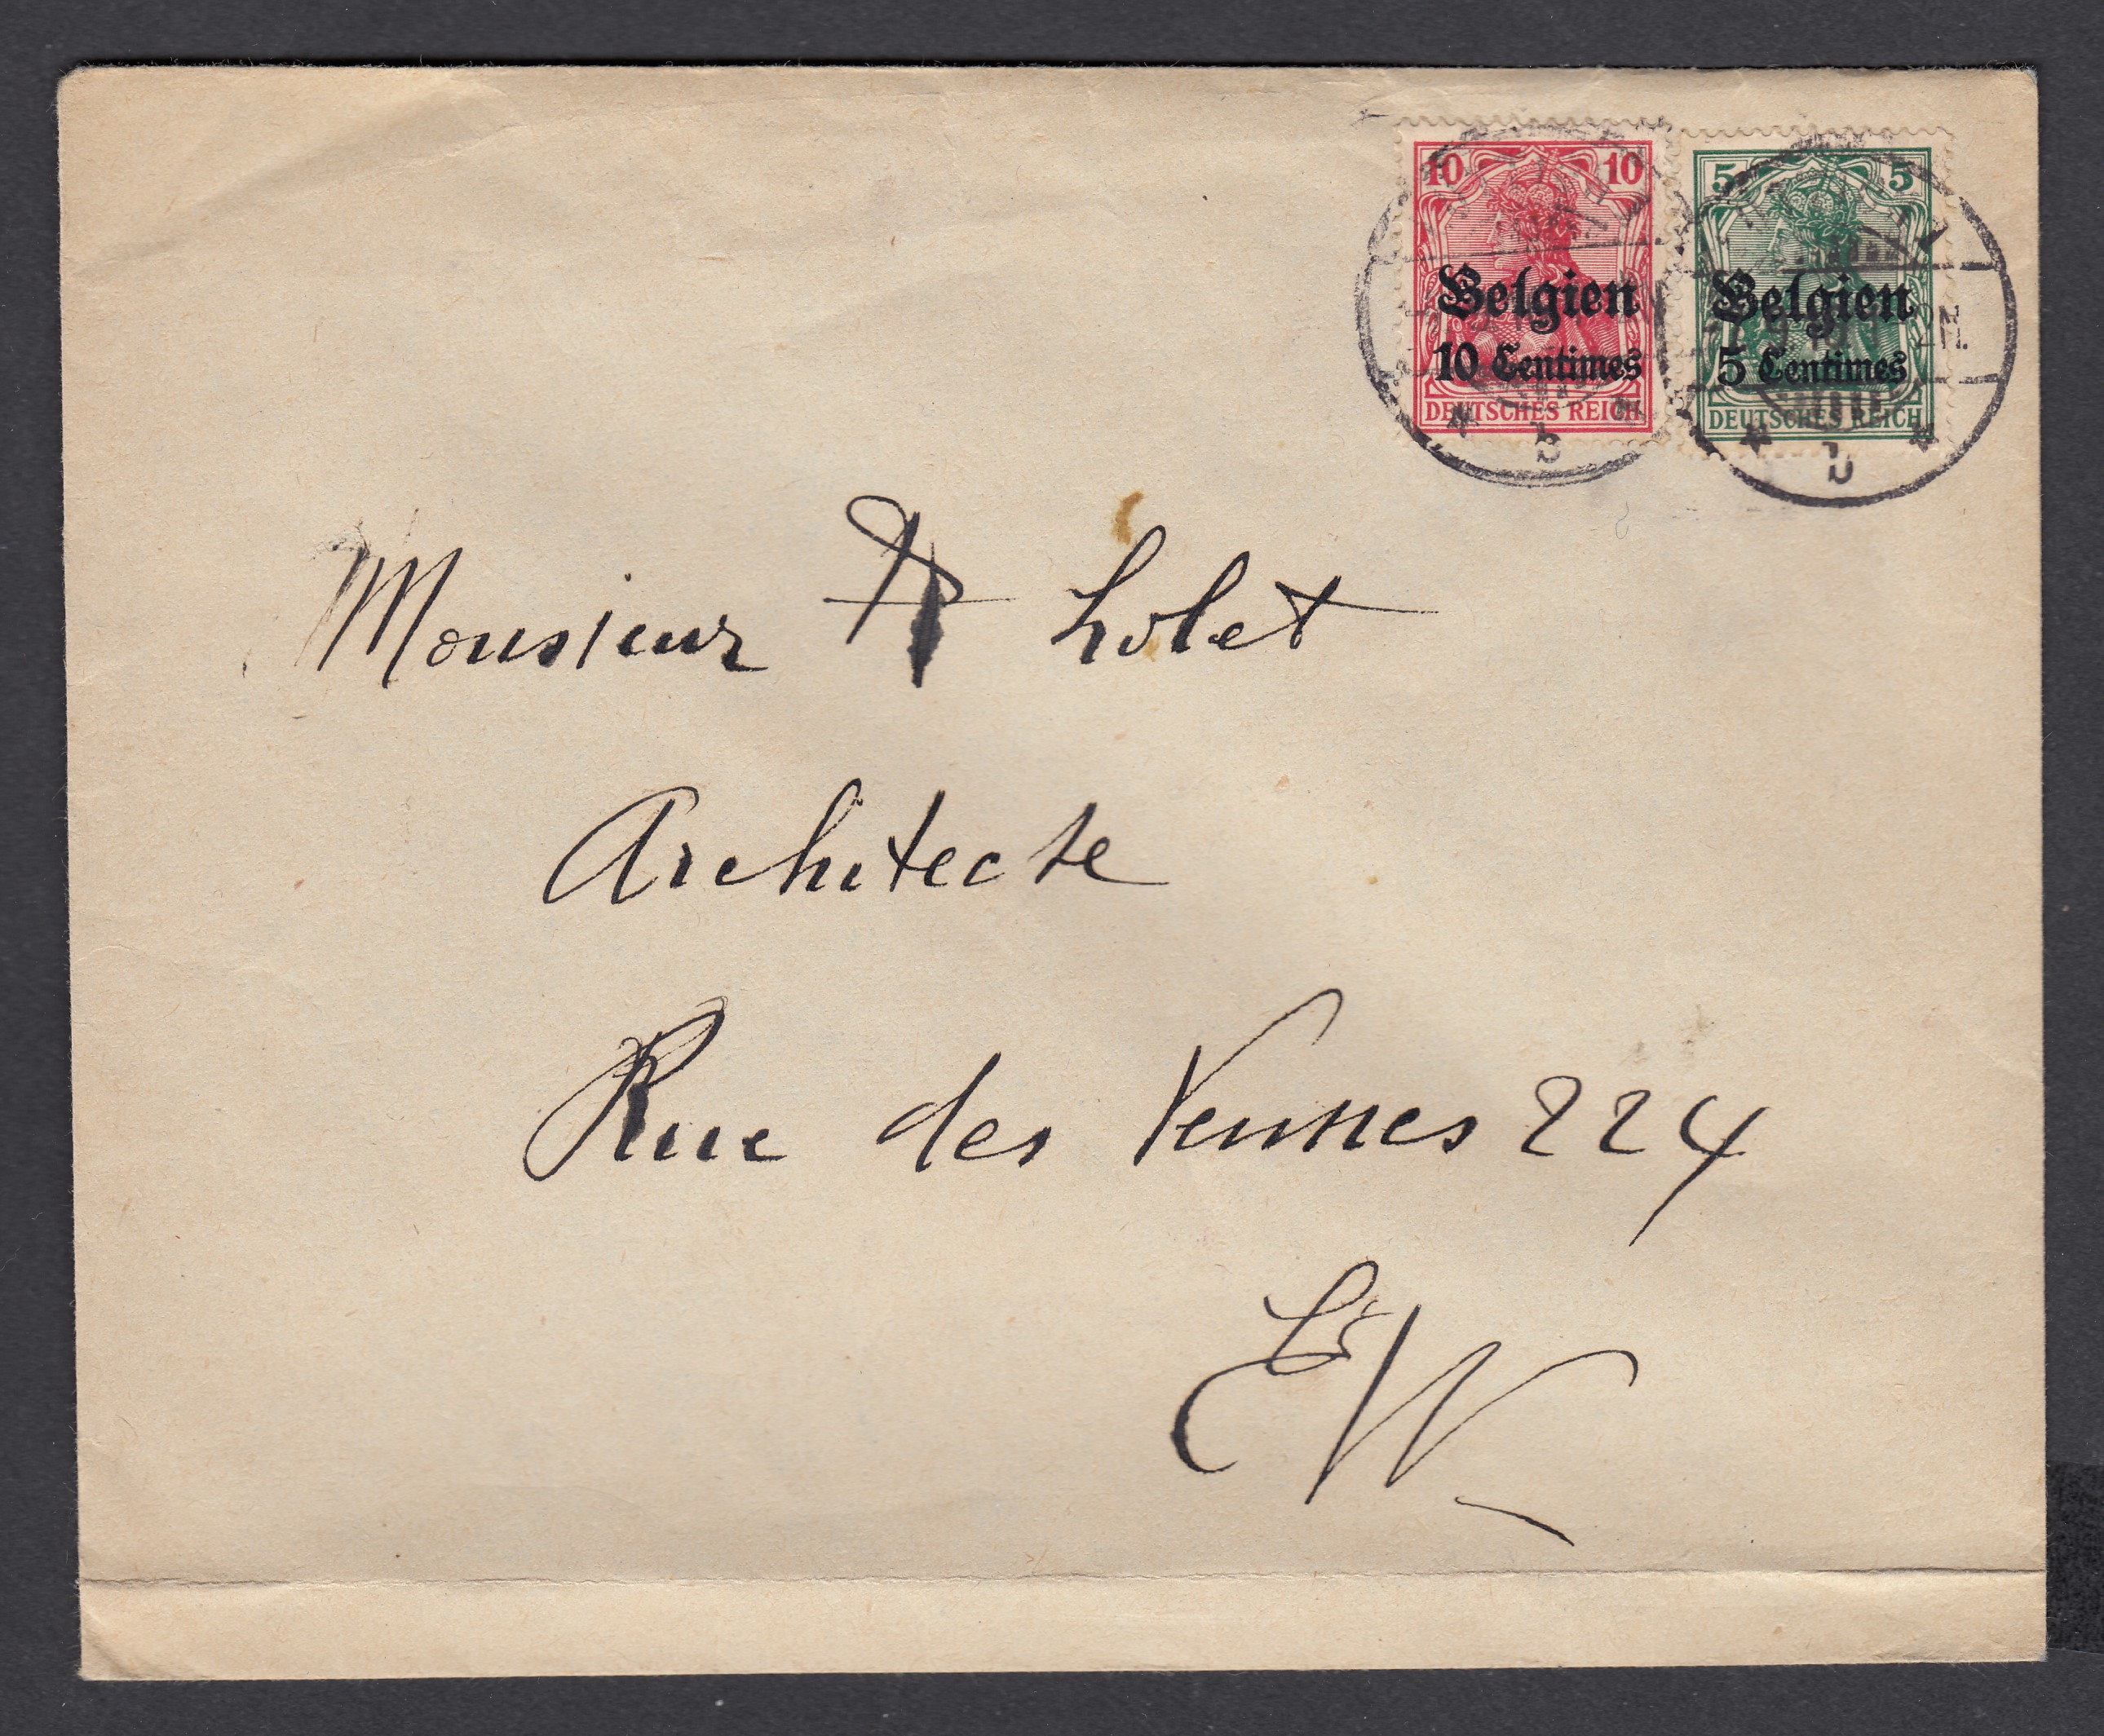 10 10
Belgien
10 Centimes
DEUTSCHES REICH
b
5 5
Belgien
5 Centimes
DEUTSCHES REICH
b
Monsieur A Lolet
Architecte
Rue des Vennes 224
EW